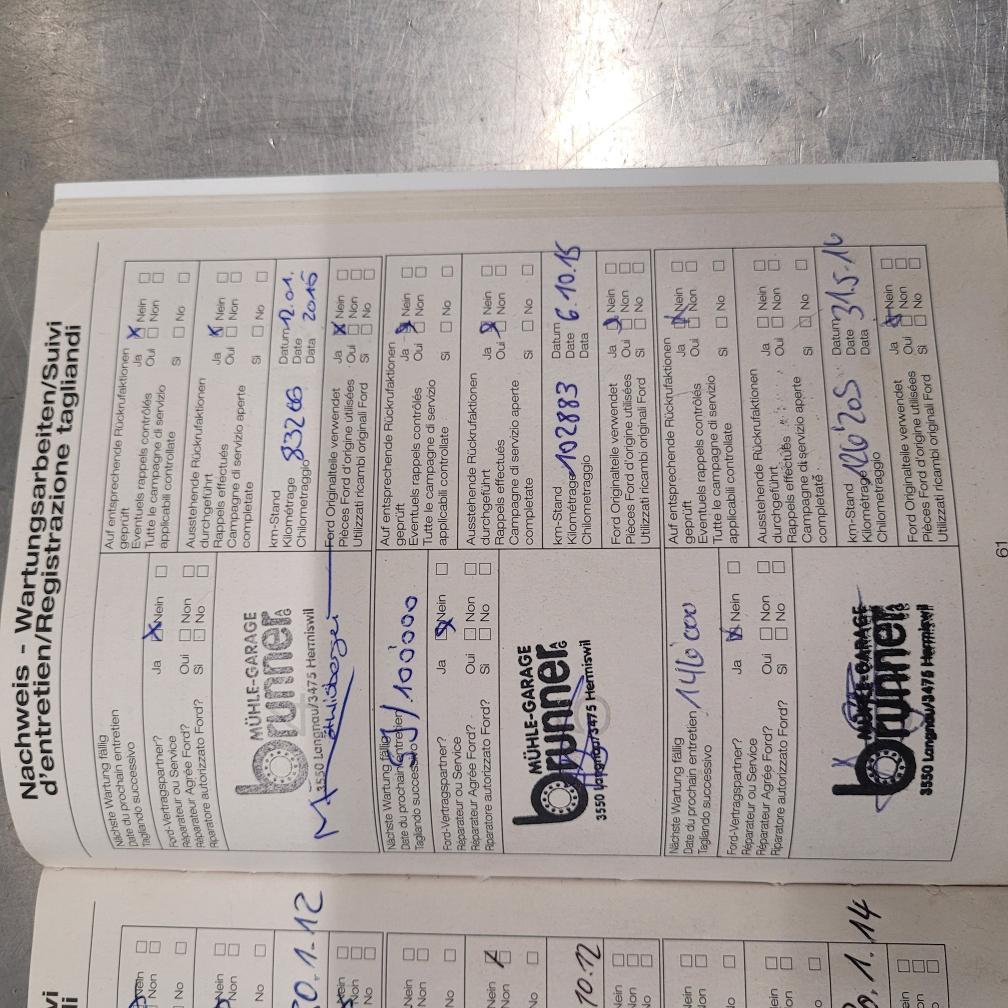 Nachweis - Wartungsarbeiten/Suivi
d'entretien/Registrazione tagliandi
Nächste Wartung fällig
Date du prochain entretien
Tagliando successivo
Ford-Vertragspartner? Ja Nein
Réparateur ou Service
Réparateur Agrée Ford? Oui Non
Riparatore autorizzato Ford? Si No
MÜHLE-GARAGE
brunner AG
3550 Langnau/3475 Hermiswil
Auf entsprechende Rückrufaktionen
geprüft Ja Nein
Eventuels rappels contrôlés Oui Non
Tutte le campagne di servizio
applicabili controllate Si No
Ausstehende Rückrufaktionen
durchgeführt Ja Nein
Rappels effectués Oui Non
Campagne di servizio aperte
completate Si No
km-Stand Datum 12.01.
Kilométrage 83266 Date 2015
Chilometraggio Data
Ford Originalteile verwendet Ja Nein
Pièces Ford d'origine utilisées Oui Non
Utilizzati ricambi originali Ford Si No
Nächste Wartung fällig
Date du prochain entretien /100'000
Tagliando successivo
Ford-Vertragspartner? Ja Nein
Réparateur ou Service
Réparateur Agrée Ford? Oui Non
Riparatore autorizzato Ford? Si No
MÜHLE-GARAGE
brunner AG
3550 Langnau/3475 Hermiswil
Auf entsprechende Rückrufaktionen
geprüft Ja Nein
Eventuels rappels contrôlés Oui Non
Tutte le campagne di servizio
applicabili controllate Si No
Ausstehende Rückrufaktionen
durchgeführt Ja Nein
Rappels effectués Oui Non
Campagne di servizio aperte
completate Si No
km-Stand Datum
Kilométrage 102883 Date 6.10.15
Chilometraggio Data
Ford Originalteile verwendet Ja Nein
Pièces Ford d'origine utilisées Oui Non
Utilizzati ricambi originali Ford Si No
Nächste Wartung fällig
Date du prochain entretien 146'000
Tagliando successivo
Ford-Vertragspartner? Ja Nein
Réparateur ou Service
Réparateur Agrée Ford? Oui Non
Riparatore autorizzato Ford? Si No
MÜHLE-GARAGE
brunner AG
3550 Langnau/3475 Hermiswil
Auf entsprechende Rückrufaktionen
geprüft Ja Nein
Eventuels rappels contrôlés Oui Non
Tutte le campagne di servizio
applicabili controllate Si No
Ausstehende Rückrufaktionen
durchgeführt Ja Nein
Rappels effectués Oui Non
Campagne di servizio aperte
completate Si No
km-Stand Datum
Kilométrage 126'205 Date 31.5.16
Chilometraggio
Ford Originalteile verwendet Nein
Pièces Ford d'origine utilisées Oui Non
Utilizzati ricambi originali Ford Si No
61
Nein
Non
No
Nein
Non
No
1.12
Nein
Non
No
Nein
Non
No
Nein
Non
No
10.12
Nein
Non
No
Nein
Non
No
Nein
Non
No
1.14
Nein
Non
No